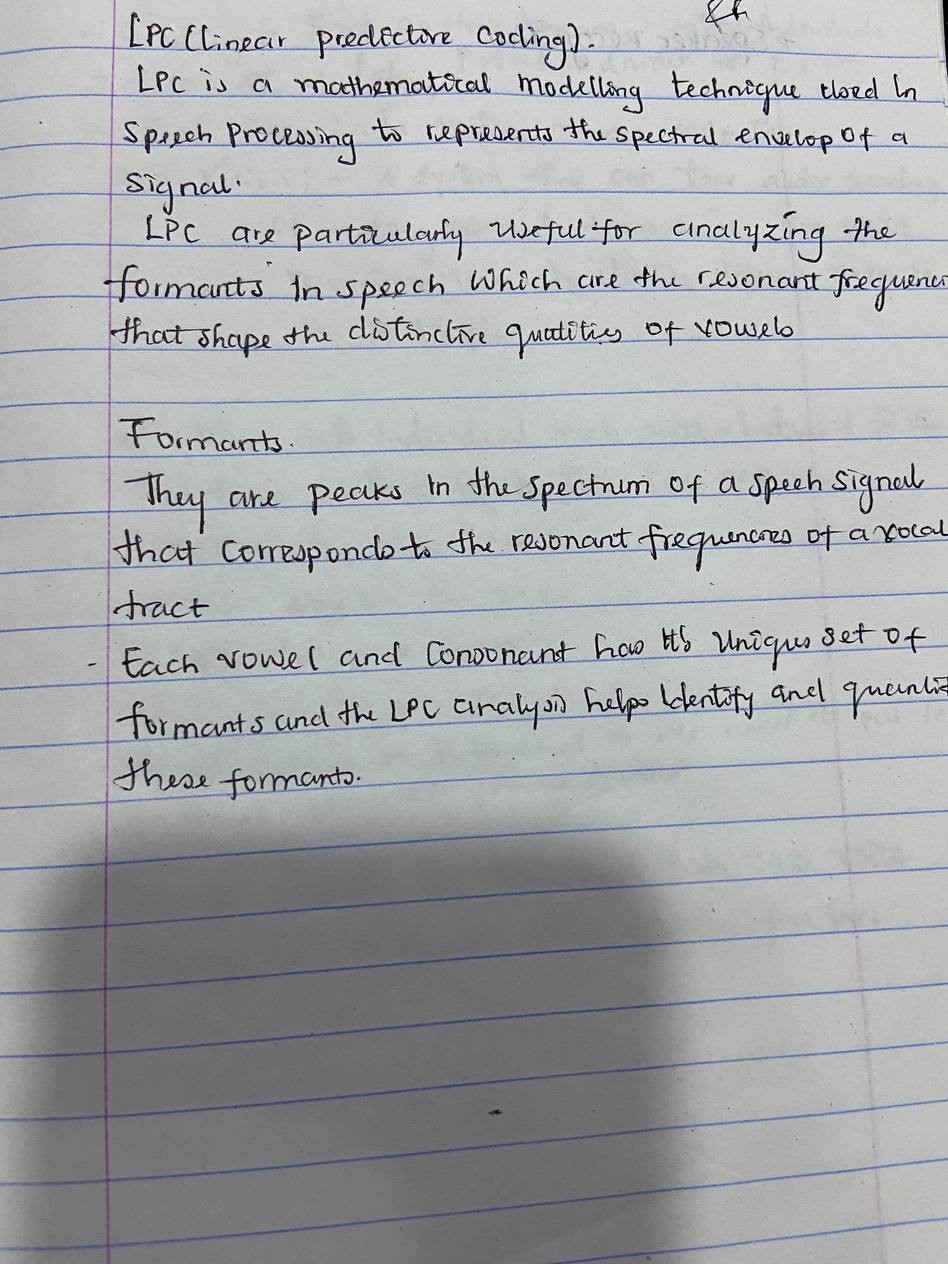 LPC (Linear predictive Coding):
LPC is a mathematical modelling technique used In
Speech Processing to represents the spectral envelop Of a
Signal.
LPC are particularly useful for analyzing the
formants In speech Which are the resonant frequenci
that shape the distinctive qualities of vowels
Formants.
They are peaks In the spectrum of a speeh Signal
that corresponds to the resonant frequencies of a vocal
tract
- Each vowel and Consonant has It's Unique set Of
formants and the LPC analysis helps Identify and quanti
these formants.